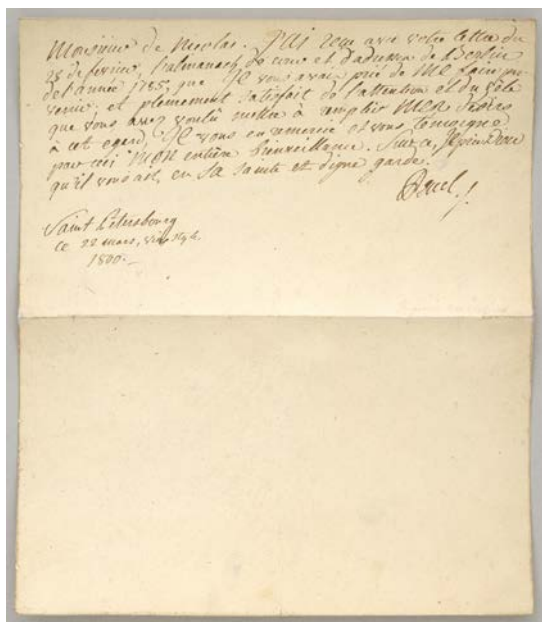 Monsieur de Nicolas. J'ai reçu avec votre lettre du
28 de fevrier, l'almanach de cour et d'adresse de Berlin
de l'année 1785, que Je vous avais prié de ME faire par
venir; et pleinement satisfait de l'attention et du zèle
que vous avez voulu mettre à remplir MES
à cet egard, Je vous en remercie et vous temoigne
par ceci MON entière bienveillance. Sur ce, Je prie Dieu
qu'il vous ait en Sa sainte et digne garde.
Paul
Saint Petersbourg
ce 22 mars, style
1800.